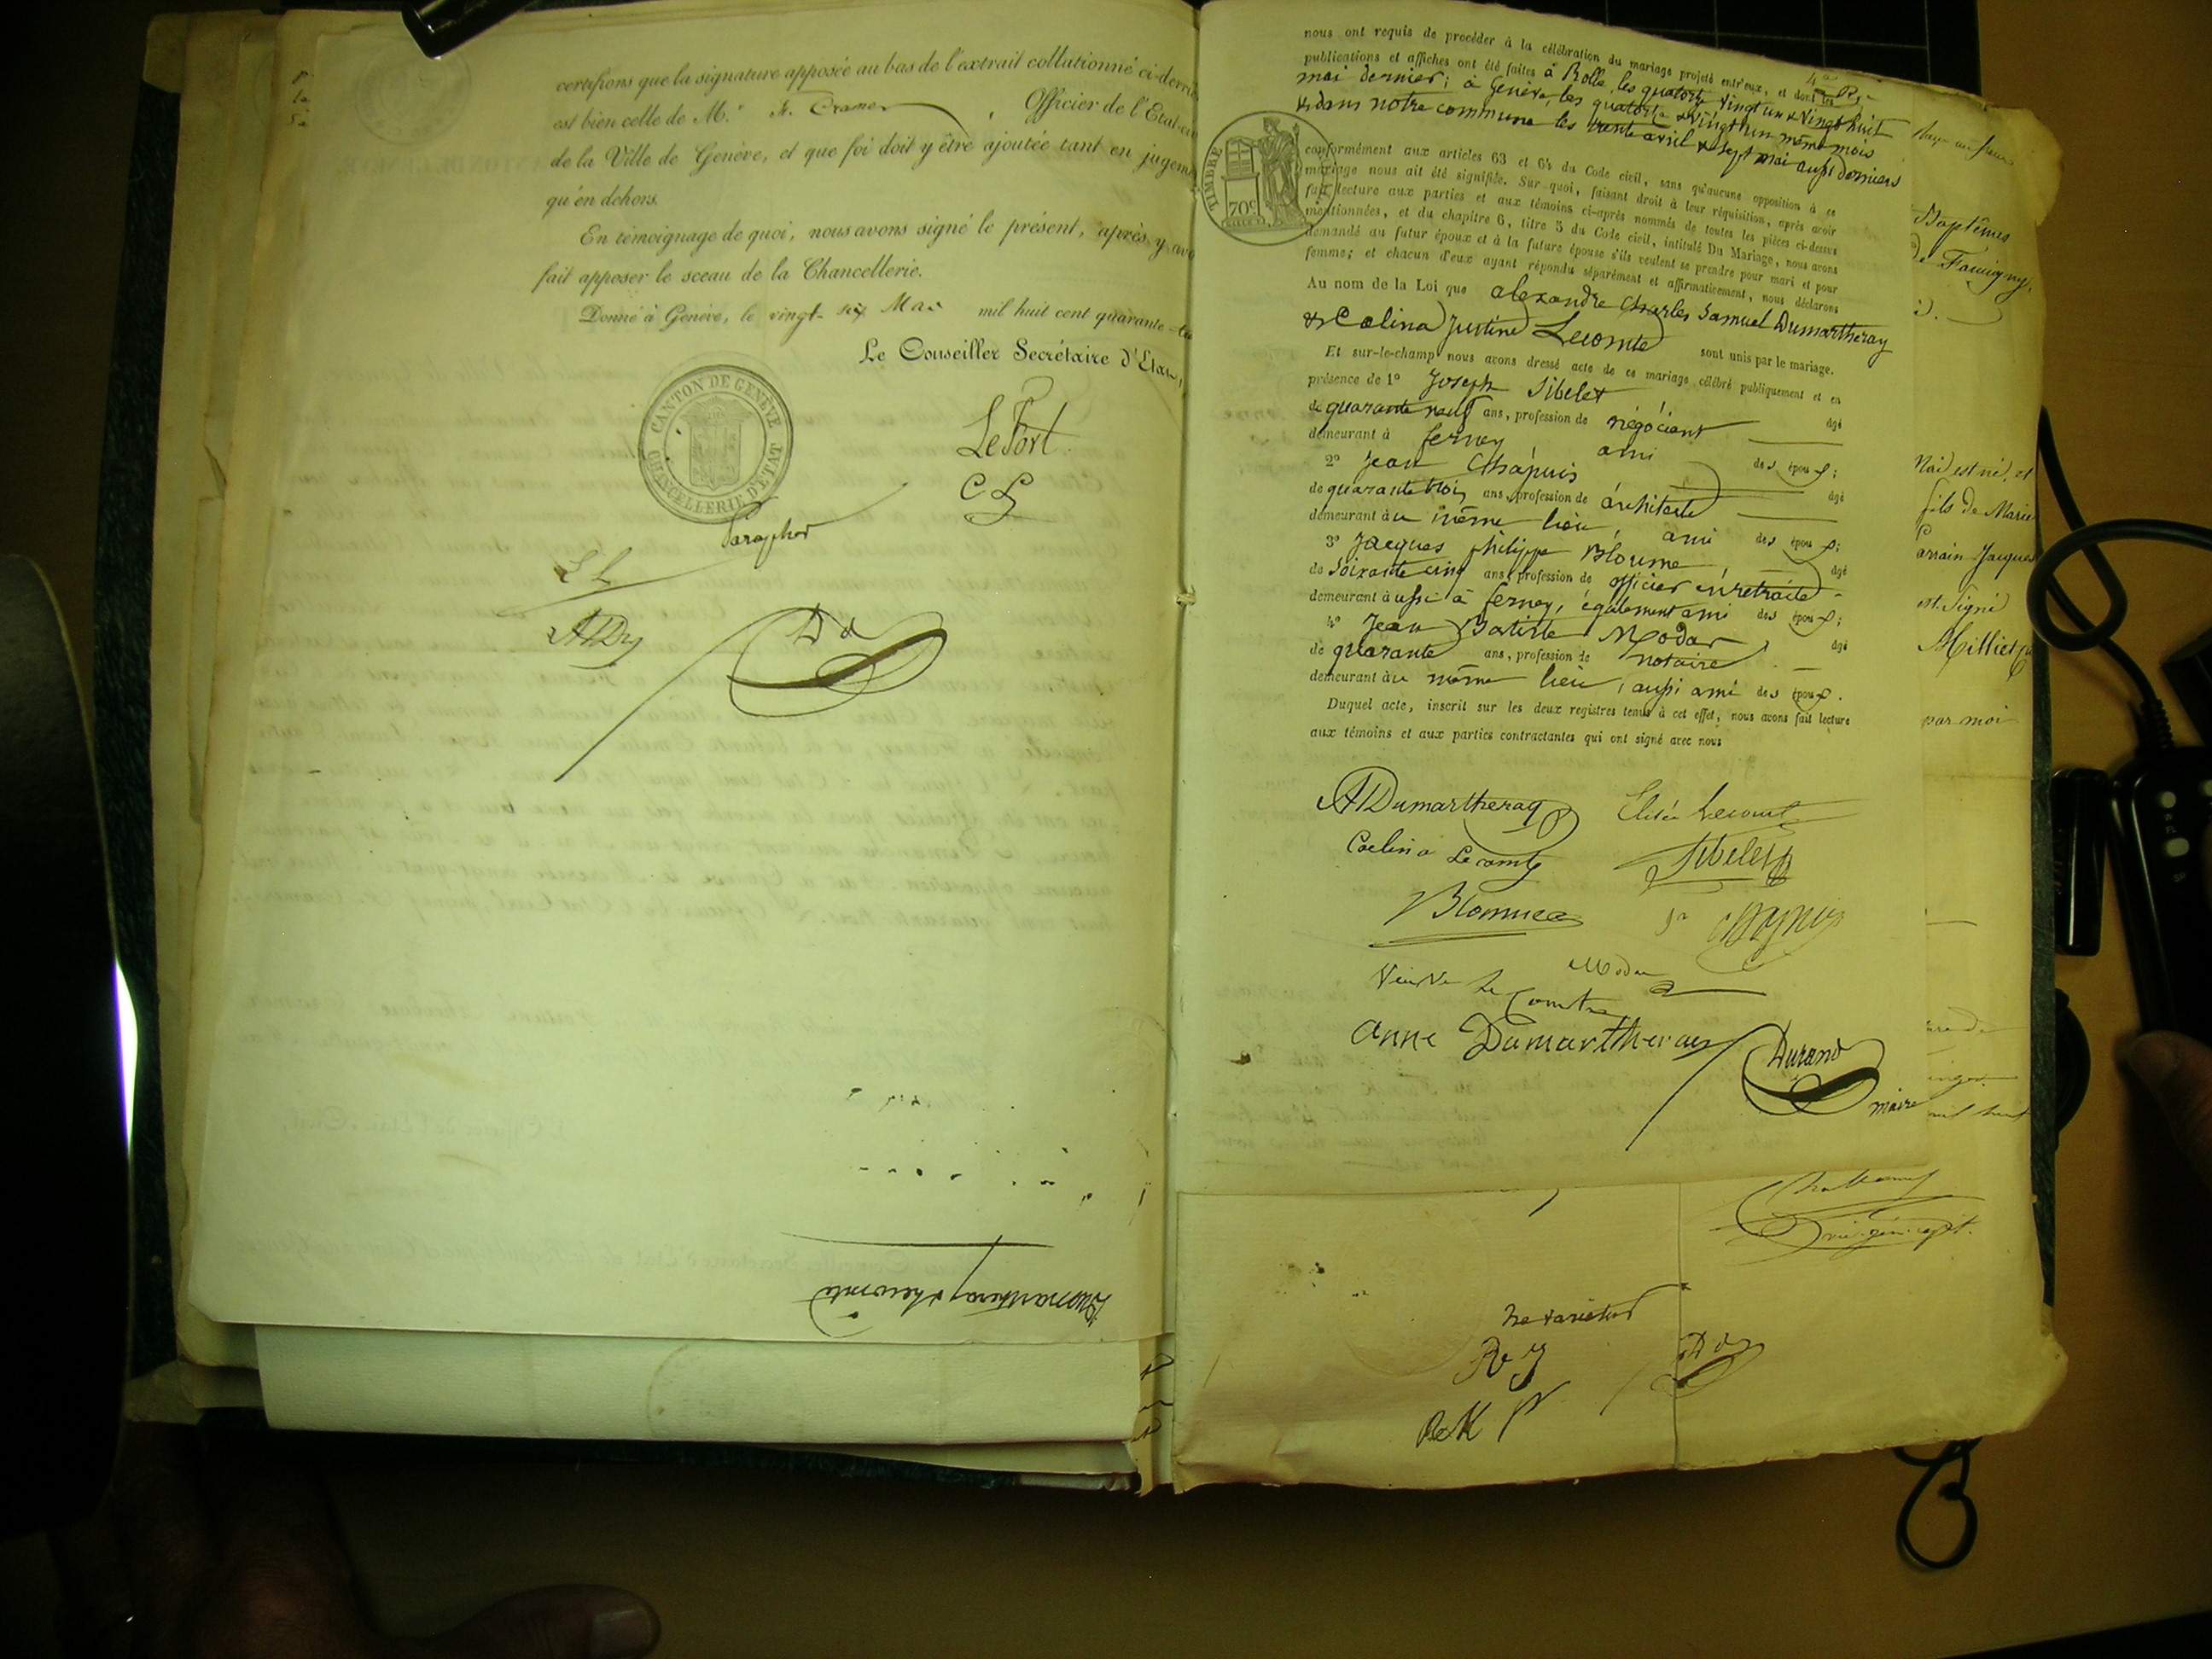 certifions que la signature apposée au bas de l'extrait collationné ci-derriè
est bien celle de M.r Fr. Cramer, Officier de l'Etat-civ
de la Ville de Genève, et que foi doit y être ajoutée tant en jugeme
qu'en dehors.
En témoignage de quoi, nous avons signé le présent, après y avo
fait apposer le sceau de la Chancellerie.
Donné à Genève, le vingt-six Mai mil huit cent quarante-
Le Conseiller Secrétaire d'Etat,
CANTON DE GENÈVE
CHANCELLERIE D'ÉTAT
LeFort
Dumartheray & Lecomte
nous ont requis de procéder à la célébration du mariage projeté entr'eux, et dont les
publications et affiches ont été faites à Rolle, les quatorze, vingt un & vingt huit
mai dernier; à Genève, les quatorze & vingt un même mois
& dans notre commune les trente avril & sept mai aussi derniers
TIMBRE
70c
conformément aux articles 63 et 64 du Code civil, sans qu'aucune opposition à ce
mariage nous ait été signifiée. Sur quoi, faisant droit à leur réquisition, après avoir
fait lecture aux parties et aux témoins ci-après nommés de toutes les pièces ci-dessus
mentionnées, et du chapitre 6, titre 5 du Code civil, intitulé Du Mariage, nous avons
demandé au futur époux et à la future épouse s'ils veulent se prendre pour mari et pour
femme; et chacun d'eux ayant répondu séparément et affirmativement, nous déclarons
Au nom de la Loi que alexandre Charles Samuel Dumartheray
& Cælina Justine Lecomte sont unis par le mariage.
Et sur-le-champ nous avons dressé acte de ce mariage célébré publiquement et en
présence de 1° Joseph Sibelet âgé
de quarante neuf ans, profession de négociant
demeurant à ferney ami des époux;
2° Jean Chapuis âgé
de quarante trois ans, profession de architecte
demeurant au même lieu, ami des époux;
3° Jacques philippe Bloume âgé
de soixante cinq ans, profession de officier en retraite
demeurant aussi à ferney, également ami des époux;
4° Jean Batiste Modas âgé
de quarante ans, profession de notaire
demeurant au même lieu, aussi ami des époux.
Duquel acte, inscrit sur les deux registres tenus à cet effet, nous avons fait lecture
aux témoins et aux parties contractantes qui ont signé avec nous
ADumartheray
Cælina Lecomte
Sibelet
Veuve Le Comte
Anne Dumartheray
Durand
maire
Baptêmes
de Faucigny,
Naï est né, et
fils de Marie
Parrain Jacques
est signé
Milliet
par moi
ne varietur